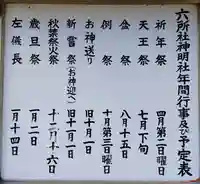 六所社神明社年間行事及び予定表
祈年祭 四月第二日曜日
天王祭 七月下旬
盆祭 八月十五日
例祭 十月第三日曜日
お神送り 旧十月一日
新嘗祭(お神迎へ) 旧十一月一日
秋葉祭火祭 十二月十六日
歳旦祭 一月一日
左儀長 一月十四日